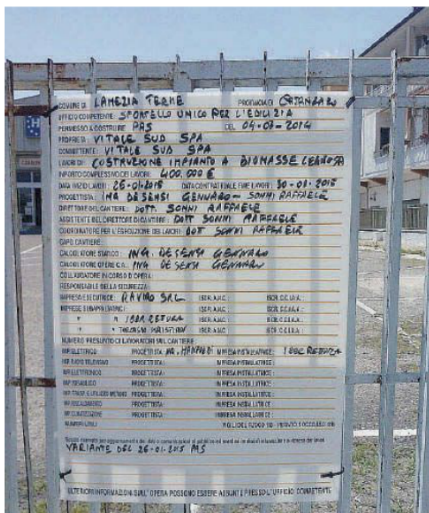 COMUNE DI LAMEZIA TERME PROVINCIA DI CATANZARO
UFFICIO COMPETENTE: SPORTELLO UNICO PER L'EDILIZIA
PERMESSO A COSTRUIRE PAS DEL 04-09-2014
PROPRIETÀ: VITALE SUD SPA
COMMITTENTE: VITALE SUD SPA
LAVORI DI: COSTRUZIONE IMPIANTO A BIOMASSE
IMPORTO COMPLESSIVO DEI LAVORI: 400.000 €
DATA INIZIO LAVORI: 26-01-2015 DATA CONTRATTUALE FINE LAVORI: 30-09-2015
PROGETTISTA: ING DE SENSI GENNARO - SONNI RAFFAELE
DIRETTORE DEL CANTIERE: DOTT. SONNI RAFFAELE
ASSISTENTE DEL DIRETTORE DI CANTIERE: DOTT SONNI RAFFAELE
COORDINATORE PER L'ESECUZIONE DEI LAVORI: DOT SONNI RAFFAELE
CAPO CANTIERE:
CALCOLATORE STATICO: ING. DE SENSI GENNARO
CALCOLATORE OPERE C.A.: ING DE SENSI GENNARO
COLLAUDATORE IN CORSO D'OPERA:
RESPONSABILE DELLA SICUREZZA:
IMPRESA ESECUTRICE: RAVINO SRL ISCR. A.N.C. ISCR. C.C.I.A.A.
IMPRESE SUBAPPALTATRICI: ISCR. A.N.C. ISCR. C.C.I.A.A.
" " ISCR. A.N.C. ISCR. C.C.I.A.A.
" " ISCR. A.N.C. ISCR. C.C.I.A.A.
NUMERO PRESUNTO DI LAVORATORI SUL CANTIERE:
IMP. ELETTRICO PROGETTISTA: IMPRESA INSTALLATRICE:
IMP. RADIO TELEVISIVO PROGETTISTA: IMPRESA INSTALLATRICE:
IMP. ELETTRONICO PROGETTISTA: IMPRESA INSTALLATRICE:
PROGETTISTA: IMPRESA INSTALLATRICE:
PROGETTISTA: IMPRESA INSTALLATRICE:
IMP. RISCALDAMENTO PROGETTISTA: IMPRESA INSTALLATRICE:
PROGETTISTA: IMPRESA INSTALLATRICE:
VARIANTE DEL 26-01-2015
ULTERIORI INFORMAZIONI SULL'OPERA POSSONO ESSERE ASSUNTE PRESSO L'UFFICIO COMPETENTE